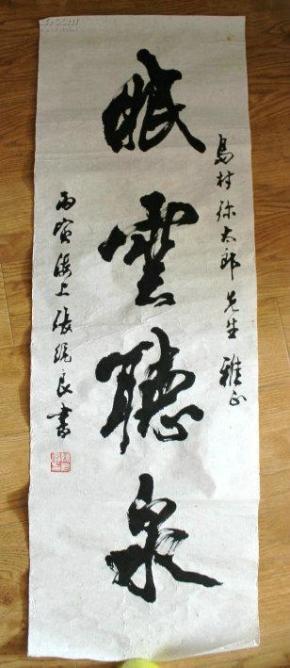 島村弥太郎先生雅正
眠雲聽泉
丙寅海上張統良書